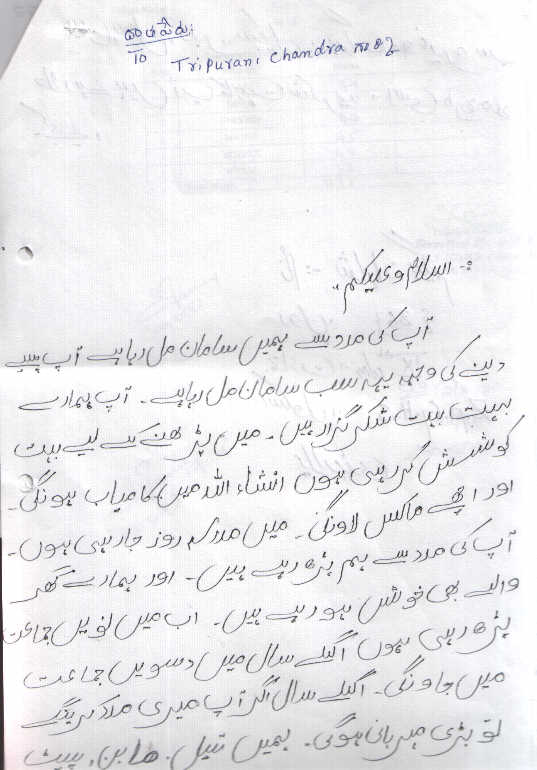 To
Tripurani Chandra
اسلام و علیکم
آپ کی مدد سے ہمیں سامان مل رہا ہے آپ پیسے
دینے کی وجہ یہ سب سامان مل رہا ہے۔ آپ ہمارے
بہت بہت شکر گزار ہیں۔ میں پڑھنے کے لیے بہت
کوشش کر رہی ہوں انشاء اللہ میں کامیاب ہونگی۔
اور اچھے ماکس لاونگی۔ میں مدرسہ روز جارہی ہوں۔
آپ کی مدد سے ہم پڑھ رہے ہیں۔ اور ہمارے گھر
والے بھی خوش ہو رہے ہیں۔ اب میں نویں جماعت
پڑھ رہی ہوں اگلے سال میں دسویں جماعت
میں جاونگی۔ اگلے سال اگر آپ میری مدد کرینگے
تو بڑی مہربانی ہوگی۔ ہمیں تیل، صابن، پیسٹ